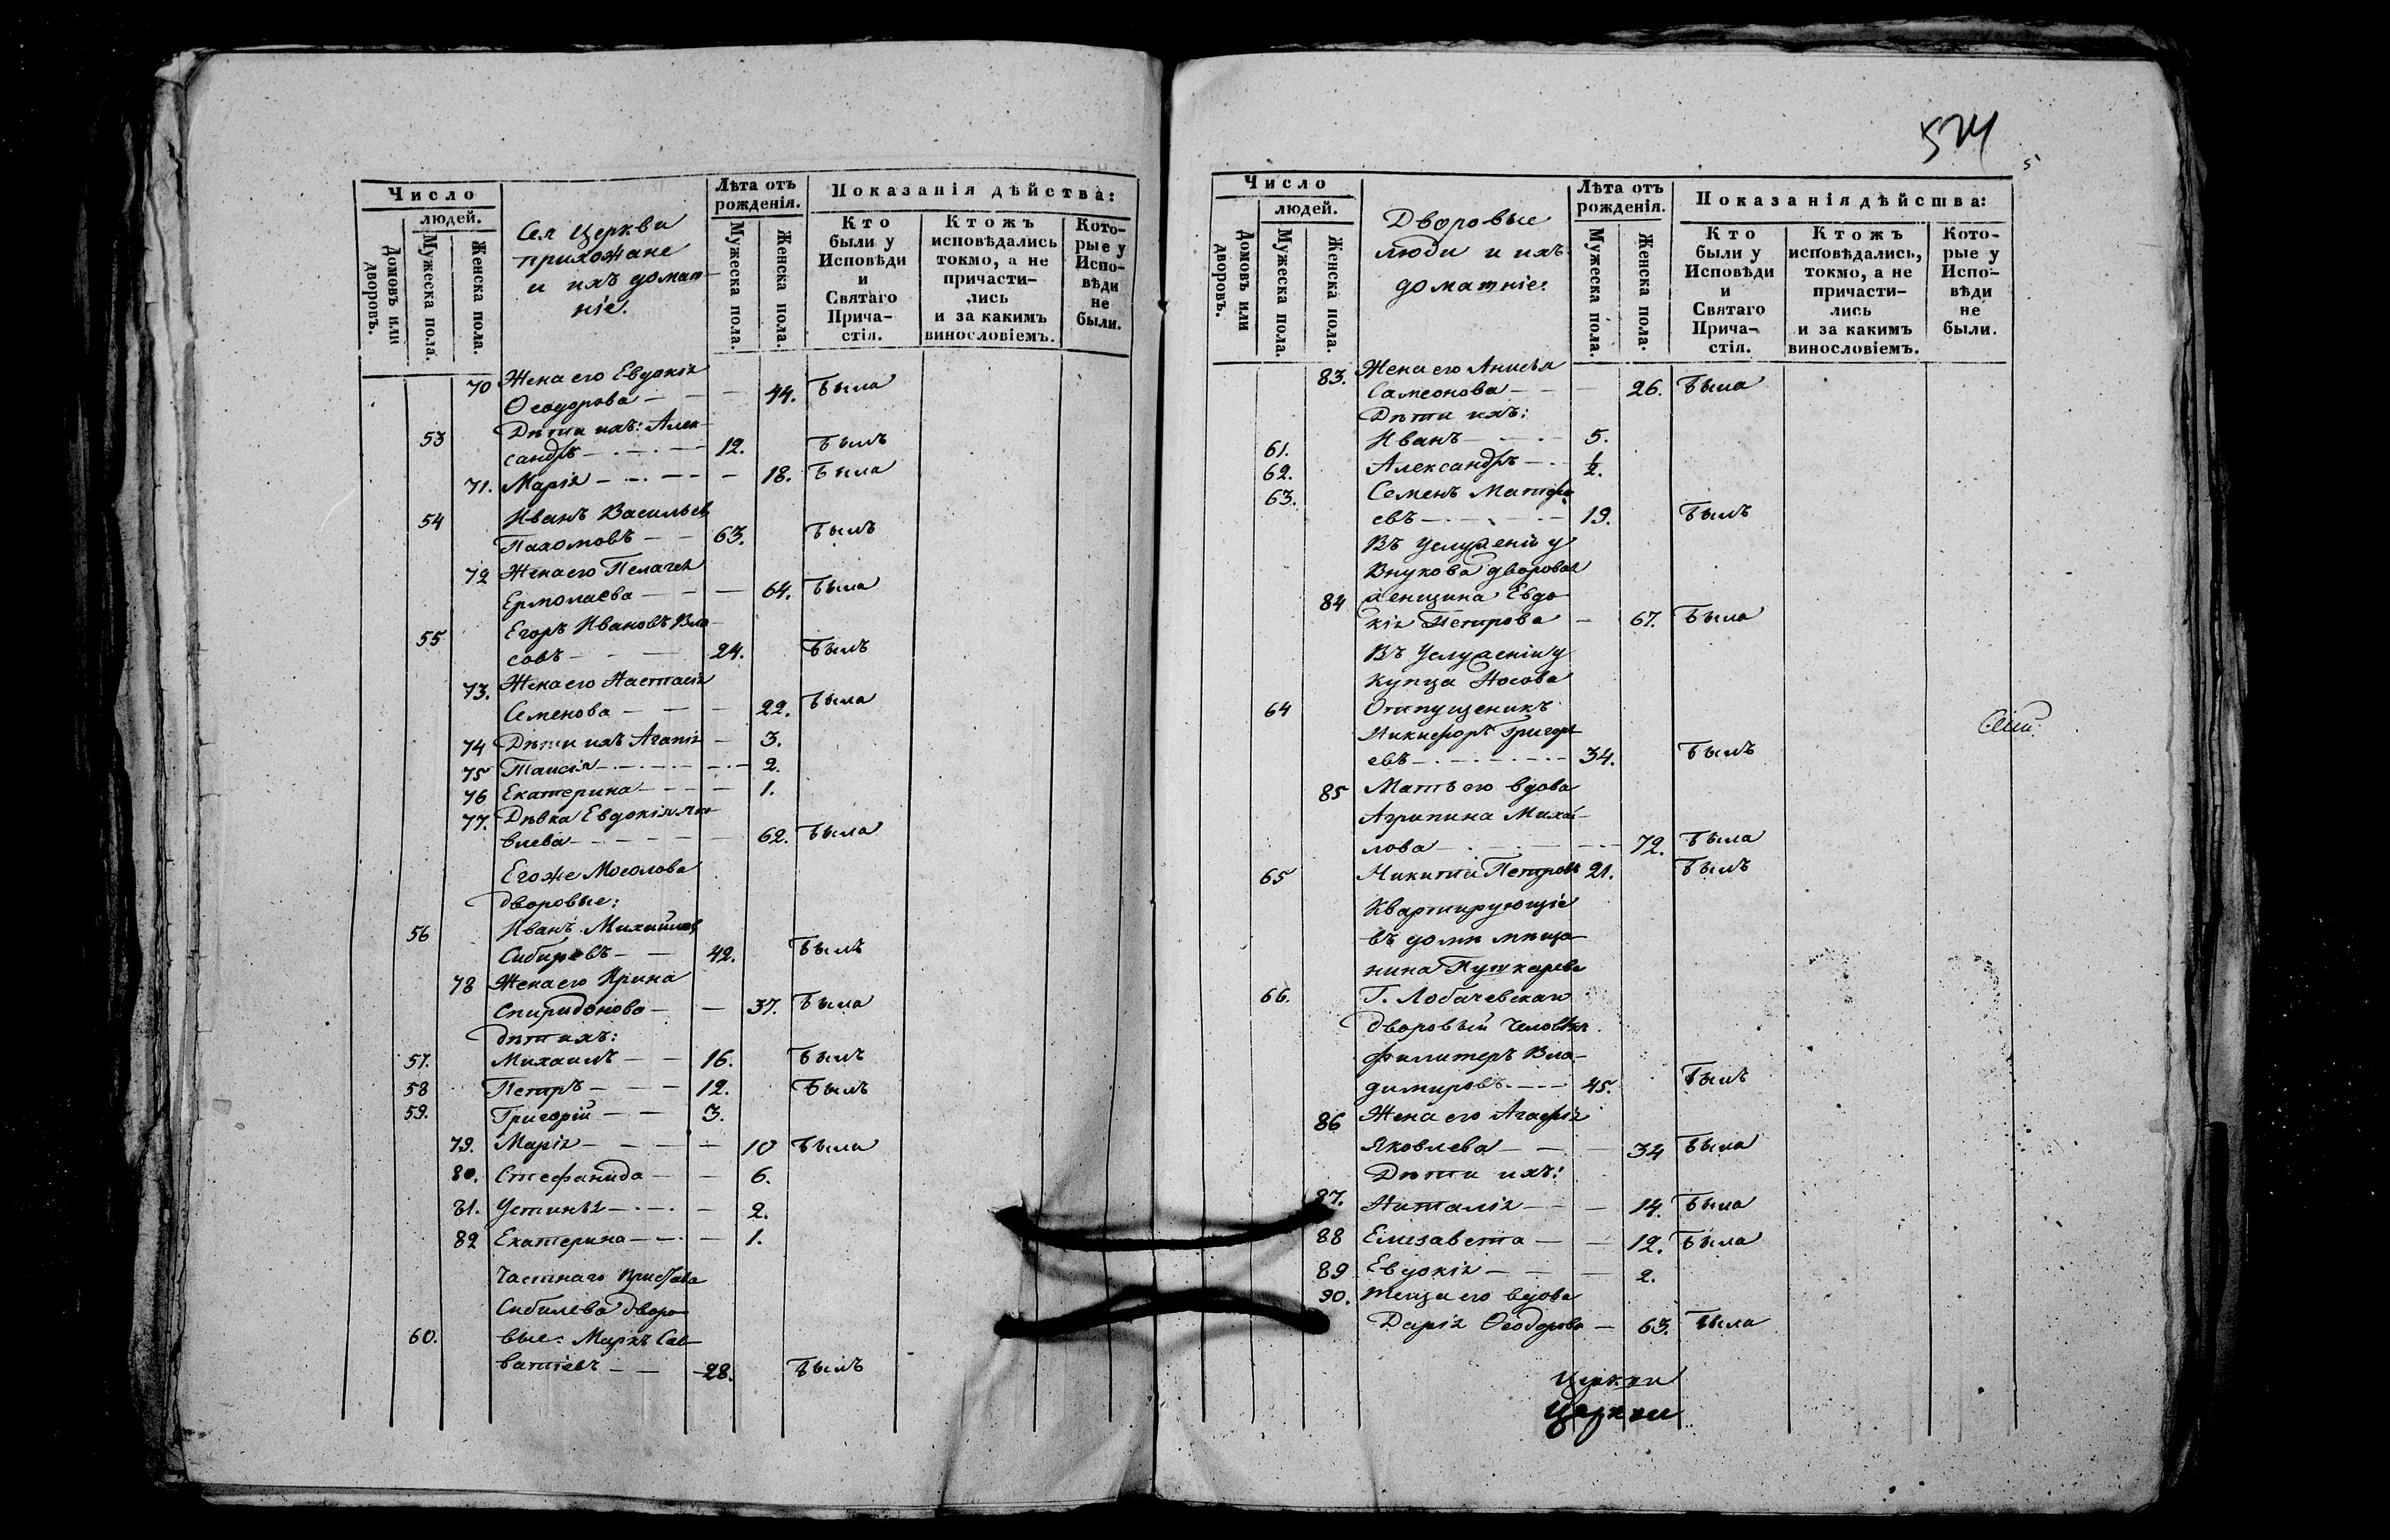 Число
людей.
Домовъ или дворовъ.
Мужеска пола.
Женска пола.
Сея церкви
прихожане
и ихъ домаш-
ніе.
Лѣта отъ
рожденія.
Мужеска пола.
Женска пола.
Показанія дѣйства:
Кто
были у
Исповѣди
и
Святаго
Прича-
стія.
Ктожъ
исповѣдались
токмо, а не
причасти-
лись
и за какимъ
винословіемъ.
Кото-
рые у
Испо-
вѣди
не
были.
70 Жена его Евдокія
Ѳеодорова — — 44. Была
53 Дѣти ихъ: Алек-
сандръ — 12. Былъ
71. Марія — — 18. Была
54 Иванъ Васильев
Пахомовъ — 63. Былъ
72 Жена его Пелагея
Ермолаева — — 64. Была
55 Егоръ Ивановъ Вла-
совъ — 24. Былъ
73. Жена его Настасія
Семенова — — 22. Была
74 Дѣти ихъ Агапія — 3.
75 Таисія — — 2.
76 Екатерина — — 1.
77. Дѣвка Евдокія Як
влева — — 62. Была
Его же Мосолова
дворовые:
56 Иванъ Михайлов
Сибиревъ — 42. Былъ
78 Жена его Ирина
Спиридонова — — 37. Была
дѣти ихъ:
57. Михаилъ — 16. Былъ
58 Петръ — 12. Былъ
59. Григорій — 3.
79. Марія — — 10 Была
80. Стефанида — — 6.
81. Устинья — — 2.
82 Екатерина — — 1.
Частнаго Пристава
Сибилева дворо
60. вые: Маркъ Сав-
ватіевъ — 28. Былъ
574
5
Число
людей.
Домовъ или дворовъ.
Мужеска пола.
Женска пола.
Дворовые
люди и ихъ
домашніе.
Лѣта отъ
рожденія.
Мужеска пола.
Женска пола.
Показанія дѣйства:
Кто
были у
Исповѣди
и
Святаго
Прича-
стія.
Ктожъ
исповѣдались,
токмо, а не
причасти-
лись
и за какимъ
винословіемъ.
Кото-
рые у
Испо-
вѣди
не
были.
83. Жена его Анисья
Самсонова — — 26. Была
Дѣти ихъ:
61. Иванъ — 5.
62. Александръ — ½.
63. Семенъ Матфе
евъ — 19. Былъ
Въ услуженіи у
Внукова дворовая
84 женщина Евдо
кія Петрова — 67. Была
Въ услуженіи у
купца Носова
64 Отпущеникъ
Никифоръ Григорь
евъ — 34. Былъ
85 Мать его вдова
Агрипина Михай-
лова — — 72. Была
65 Никита Петровъ 21. Былъ
Квартирующіе
въ домѣ мѣща-
нина Пушкарева
66. Г. Лобачевскаго
дворовый человѣкъ
Филитеръ Вла-
димировъ — 45. Былъ
86 Жена его Агафья
Яковлева — — 34 Была
Дѣти ихъ:
87. Наталія — — 14. Была
88 Елизавета — — 12. Была
89 Евдокія — — 2.
90. Теща его вдова
Дарія Ѳеодорова — 63. Была
Церкви
Церкви